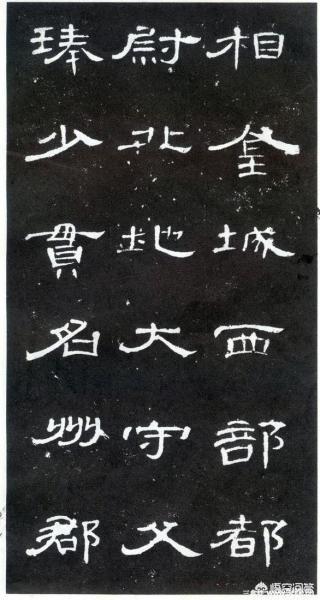 相金城西部都
尉北地大守父
琫少貫名州郡
悟空问答